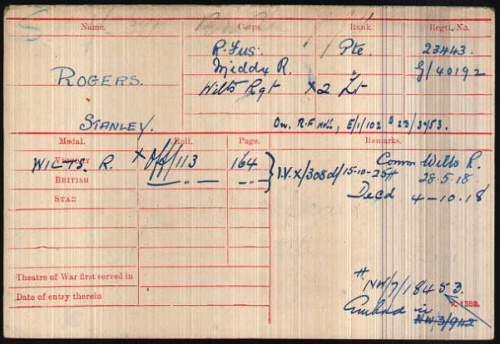 Name. Corps. Rank Regtl. No.
R. Fus. Pte. 23443.
ROGERS. Middx R. " G/40192
Wilts Rgt X2 Lt
STANLEY. On. R.F. roll, E/1/102 B 23/3953.
Medal. Roll. Page. Remarks.
VICTORY WILTS. R. X Off/113 164 I.V.X/308d/15-10-25# Comm Wilts R.
BRITISH — " — — " — 28.5.18
STAR Decd 4-10-18
Theatre of War first served in
Date of entry therein
# NW/7/1845 D.
K. 1382.
NW 3/942